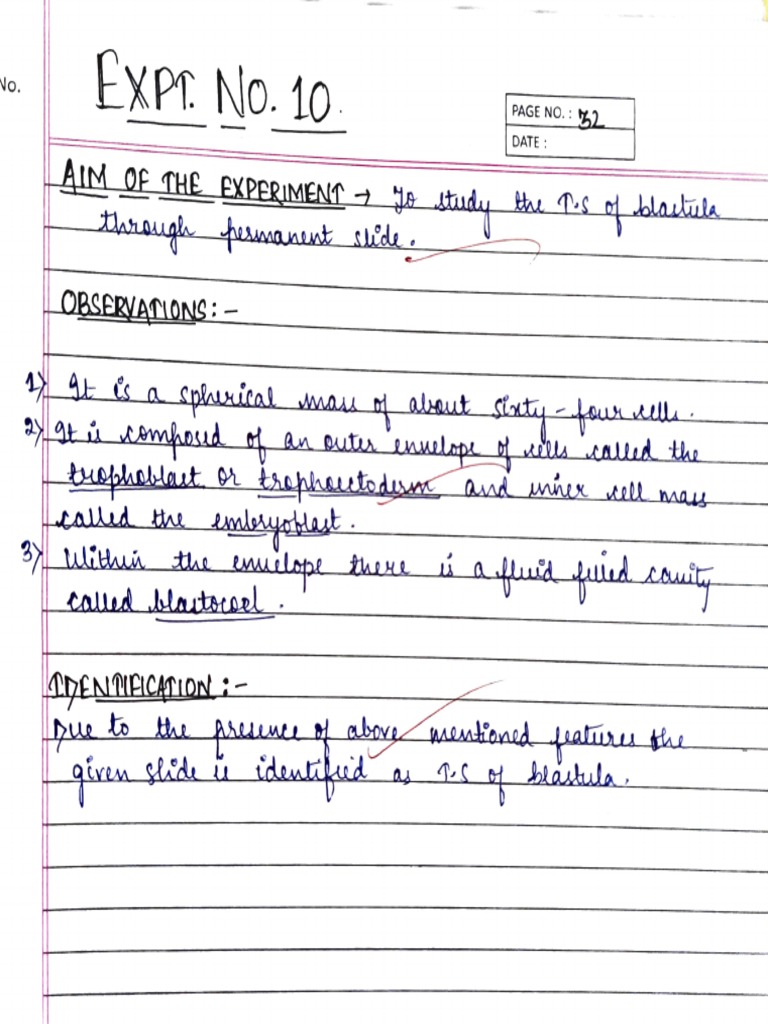 No.
EXPT. NO. 10.
PAGE NO. : 32
DATE :
AIM OF THE EXPERIMENT → To study the T.S of blastula
through permanent slide.
OBSERVATIONS:-
1) It is a spherical mass of about sixty-four cells.
2) It is composed of an outer envelope of cells called the
trophoblast or trophoectoderm and inner cell mass
called the embryoblast.
3) Within the envelope there is a fluid filled cavity
called blastocoel.
IDENTIFICATION:-
Due to the presence of above mentioned features the
given slide is identified as T.S of blastula.